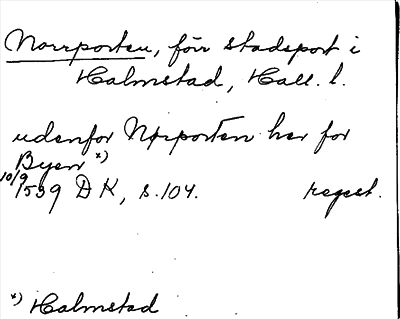 Norrporten, förr stadsport i
Halmstad, Hall. l.
udenfor Nørporten her for
Byen *)
10/9 1539 DK, s. 104. regest.
*) Halmstad